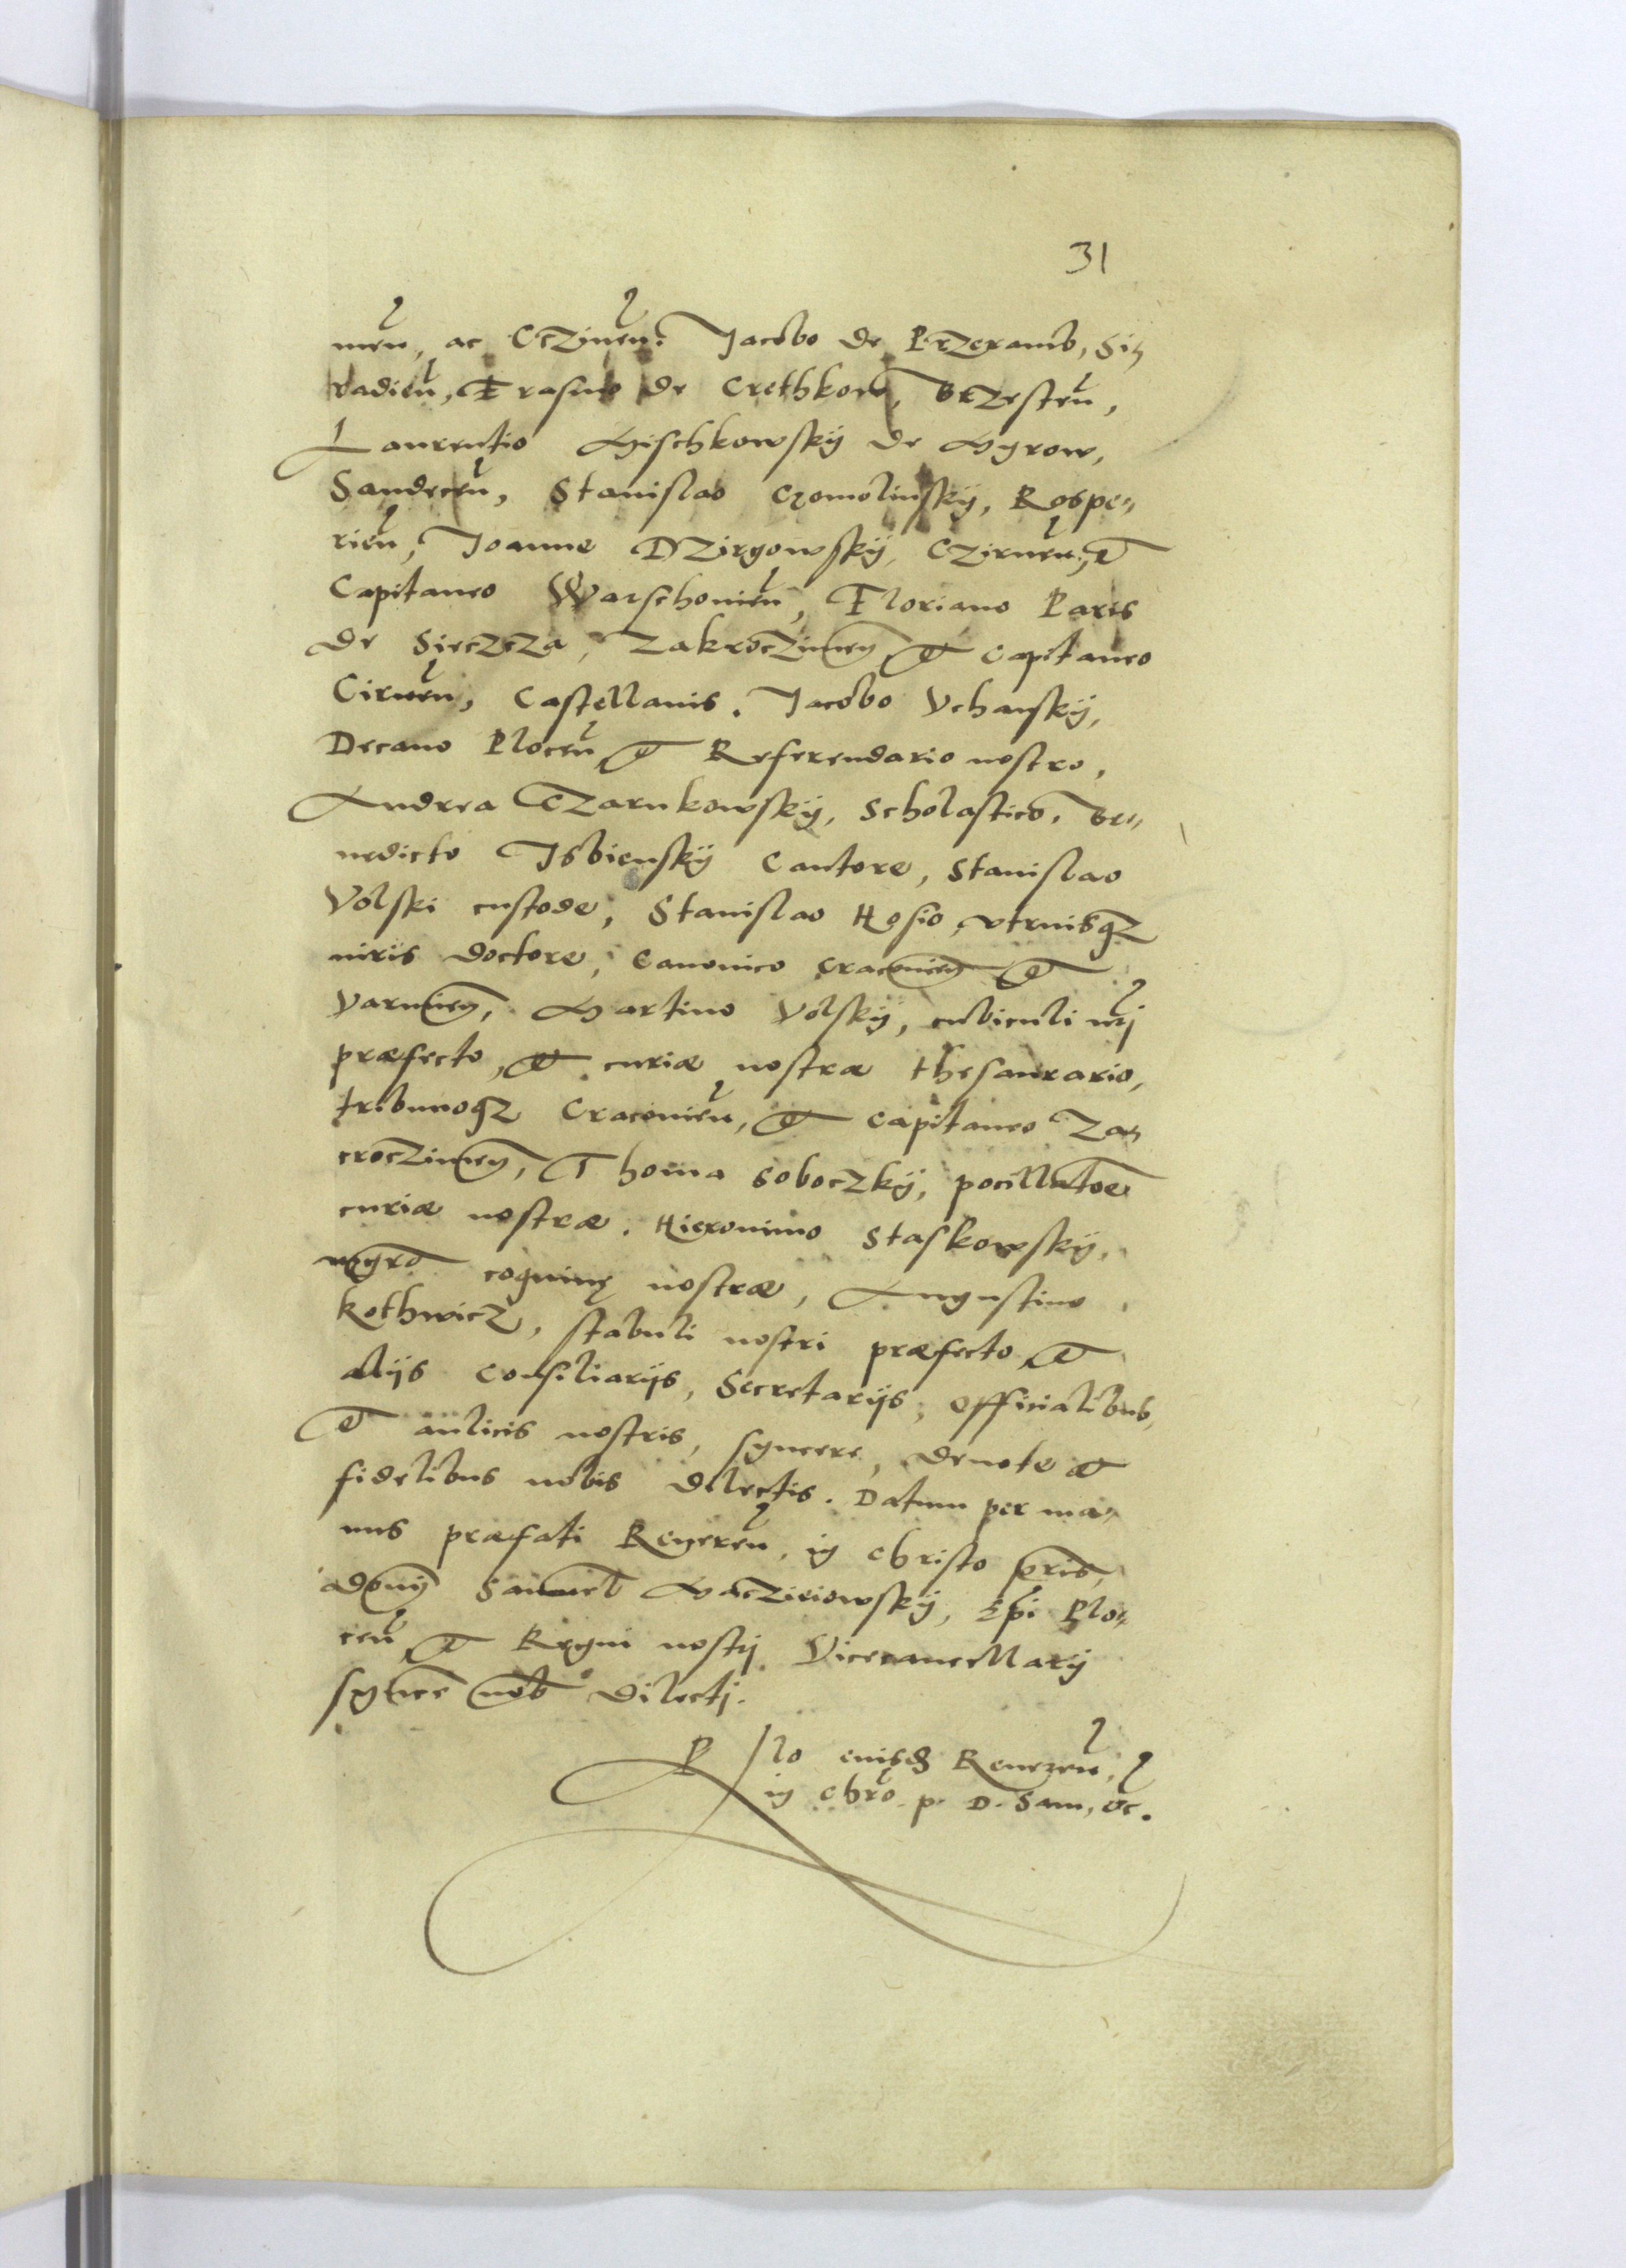 31
men, ac Cczinen. Jacobo de Przeramb, Si,
radien, Erasmo de Crethkow, Brzesten,
Laurentio Mischkowskÿ de Myrow,
Sandecen, Stanislao Czomolinskÿ, Rospe,,
rien, Joanne Dzirgowskÿ, Czirnen, et
Capitaneo Warschonien, Floriano Paris
de Sieczcza, Zakroczimen et Capitaneo
Cirnen, Castellanis. Jacobo Vchanskÿ,
Decano Plocen et Referendario nostro,
Andrea Czarnkowskÿ, Scholastico, Be,,
nedicto Isbienskÿ Cantore, Stanislao
Volski custode, Stanislao Hosio, vtriusqz
iuris doctore, Canonico Cracouien et
Varmien, Martino Volskÿ, cubiculi nri
præfecto, et curiæ nostræ thesaurario,
tribunoqz Cracouien, et Capitaneo Za,
croczimen, Thoma Soboczkÿ, pocillatore
curiæ nostræ. Hieronimo Staskowskÿ,
mgro coquinę nostræ, Augustino
Kothwicz, stabuli nostri præfecto et
alijs Consiliarijs, Secretarijs, Officialibus,
et aulicis nostris, syncere, deuote et
fidelibus nobis dilectis. Datum per ma,
nus præfati Reueren, in Christo pris,
dni Samuel Macziеiowskÿ, Epi Plo,,
cen et Regni nostrj Vicecancellarij
syncere nob dilectj.
P Ilo eiusd Reueren,
in Chro p. D. Sam, etc.